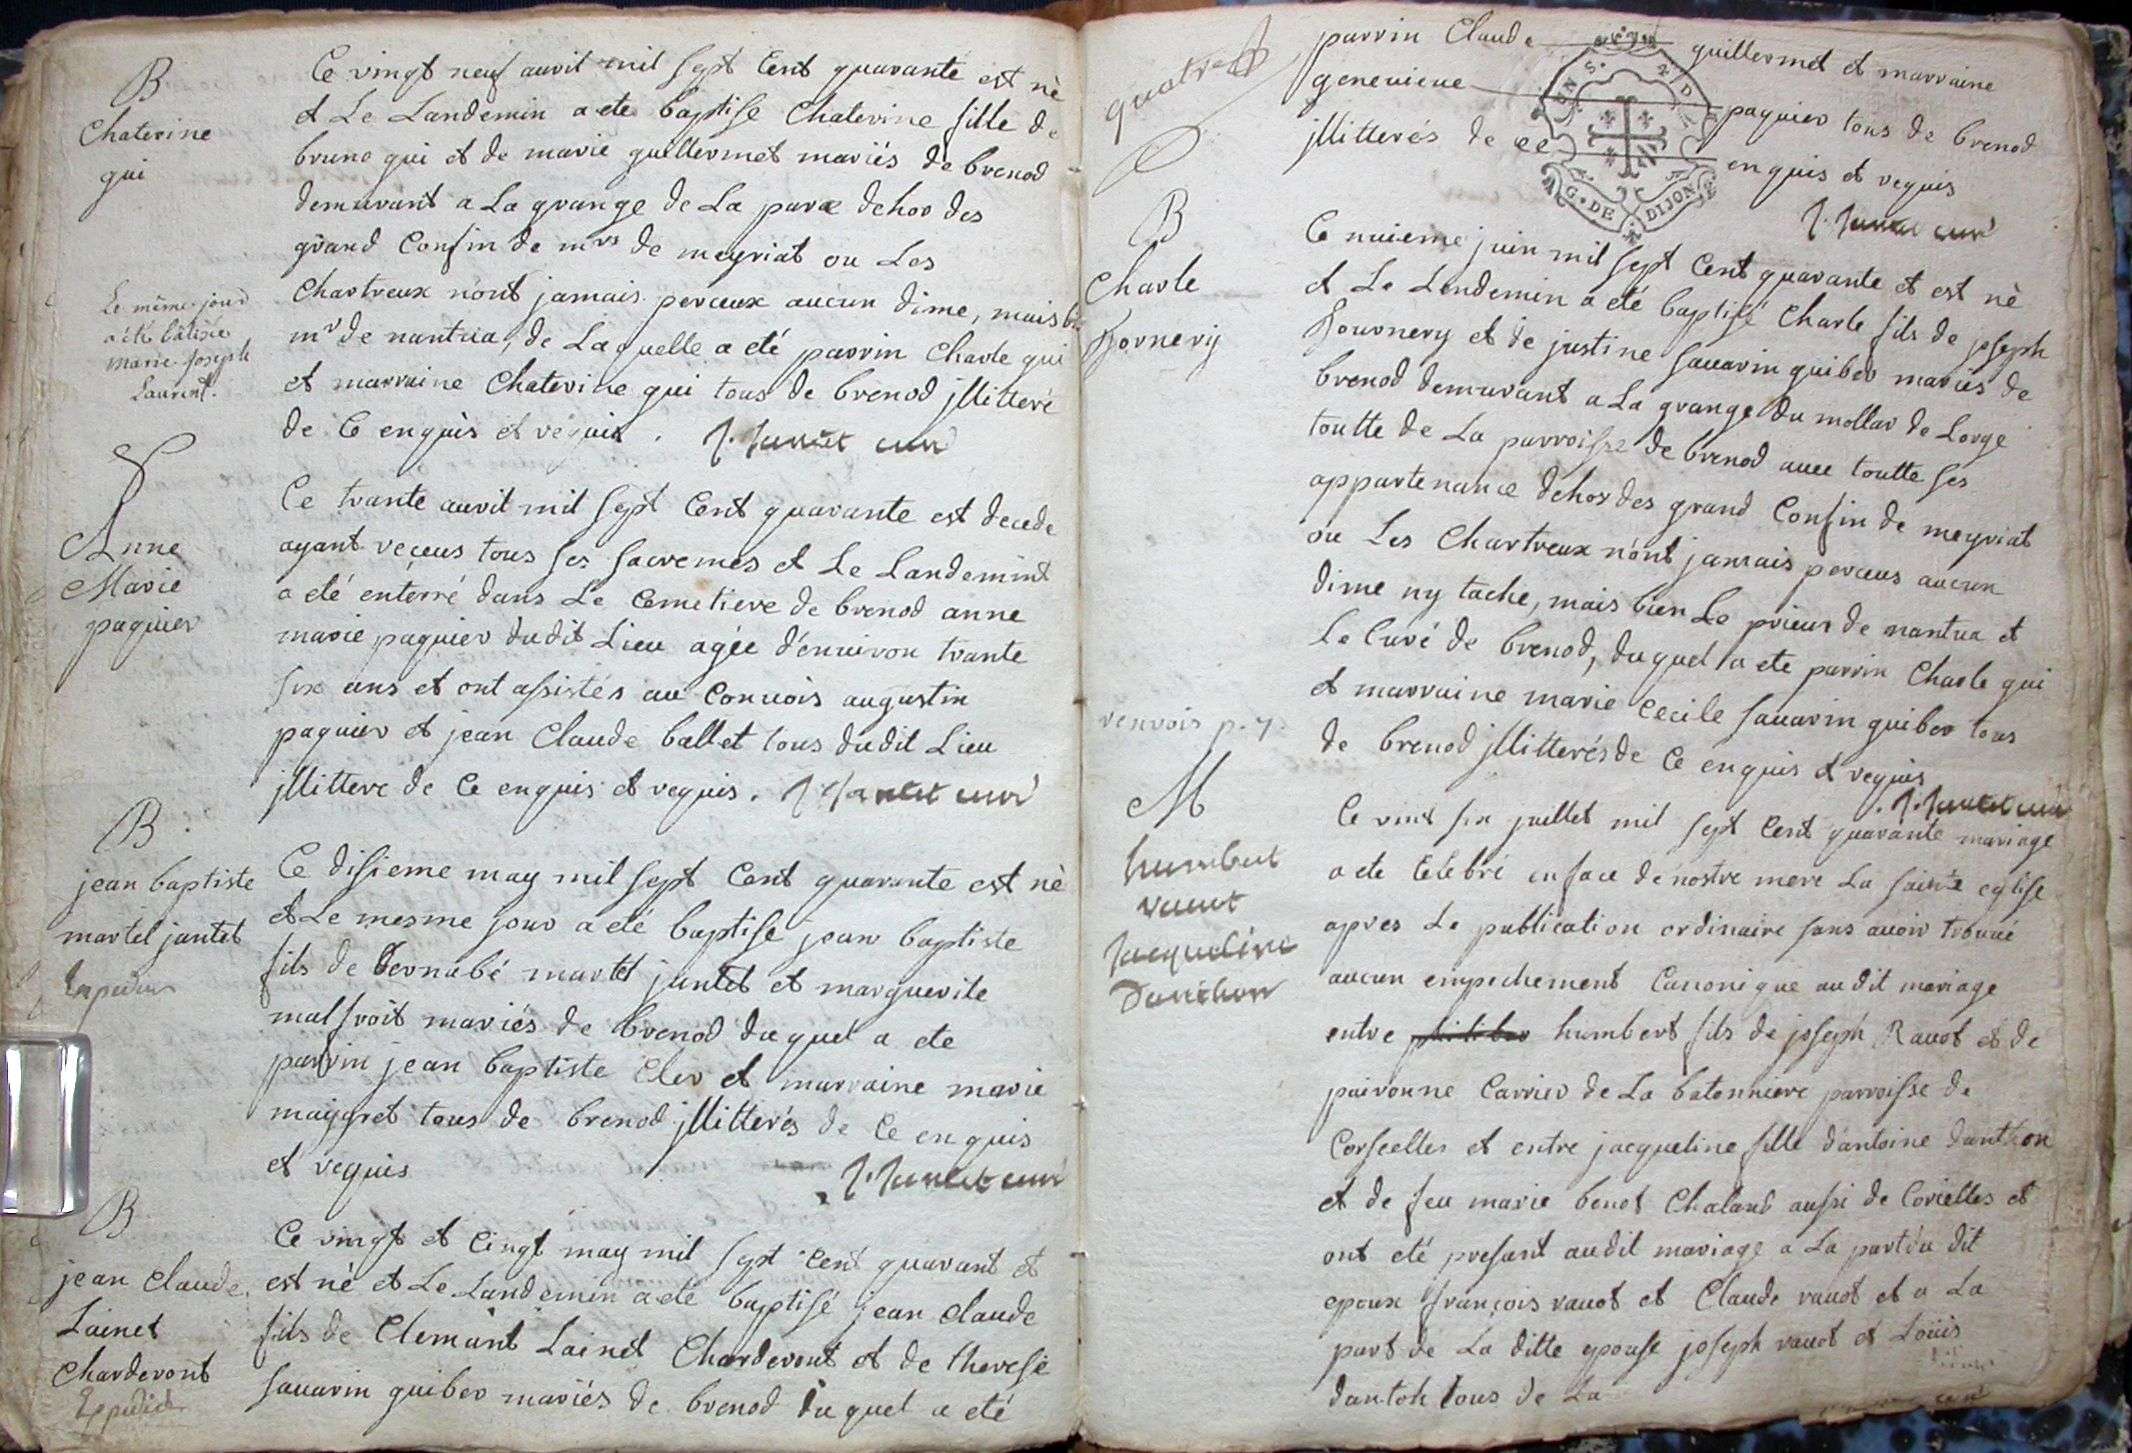 B
Chaterine
gui
Ce vingt neuf auril mil sept Cent quarante est nè
et Le Landemin a ete baptise Chaterine fille de
bruno gui et de marie guillermet mariés de brenod
demurant a La grange de La parae dehor des
grand Confin de mrs de meyriat ou Les
Chartreux nont jamais perceux aucun dime, mais
mr de nantua, de Laquelle a eté parrin Charle gui
et marraine Chaterine gui tous de brenod jllitteré
de Ce enquis et requis. J. Jantet curé
Le même jour
a été batisée
marie joseph
Laurent.
Anne
Marie
paquier
Ce trante auril mil sept Cent quarante est decede
ayant receus tous ses sacremes et Le Landemint
a eté enterré dans Le Cemetiere de brenod anne
marie paquier dudit Lieu agée d'enuiron trante
six ans et ont assistés au Conuois augustin
paquier et jean Claude ballet tous dudit Lieu
jllittere de Ce enquis et requis. J. Jantet curé
B
jean baptiste
martel jantet
Expedier
Ce disieme may mil sept Cent quarante est nè
et Le mesme jour a eté baptise jean baptiste
fils de bernabé martel jantet et marguerite
malfroit mariés de brenod duquel a ete
parrin jean baptiste Cler et marraine marie
maigret tous de brenod jllitterés de Ce enquis
et requis J. Jantet curé
B
jean Claude
Lainet
Charderont
Expedié
Ce vingt et Cingt may mil sept Cent quarant et
est nè et Le Landemin a eté baptisé jean Claude
fils de Clemant Lainet Charderont et de therese
sauarin guiber mariés de brenod duquel a eté
quatre
parrin Claude guillermet et marraine
geneuieue paquier tous de brenod
jllitterés de ce enquis et requis
J. Jantet curé
GEN S. 2 D
G. DE DIJON
B
Charle
fornery
Ce nuieme juin mil sept Cent quarante et est nè
et Le Lendemin a eté baptisé Charle fils de joseph
fournery et de justine sauarin guiber mariés de
brenod demurant a La grange du mollar de Lorge
toutte de La parroisse de brenod auec toutte ses
appartenance dehor des grand Confin de meyriat
ou Les Chartreux nont jamais perceus aucun
dime ny tache, mais bien Le prieur de nantua et
Le Curé de brenod, duquel a ete parrin Charle gui
et marraine marie Cecile sauarin guiber tous
de brenod jllitterés de Ce enquis et requis
J. Jantet curé
renvois p. 7.
M
humbert
rauot
Jacqueline
Danthon
Ce vint six juillet mil sept Cent quarante mariage
a ete Celebré en face de nostre mere La sainte eglise
apres La publication ordinaire sans auoir trouué
aucun empechement Canonique audit mariage
entre humbert fils de joseph Rauot et de
pairoune Carrier de La batonniere parroisse de
Corseelles et entre jacqueline fille d'antoine danthon
et de feu marie benot Chaland aussi de Corielles et
ont eté presant audit mariage a La part du dit
epoux françois rauot et Claude rauot et a La
part de La ditte epouse joseph rauot et Loüis
danton tous de La